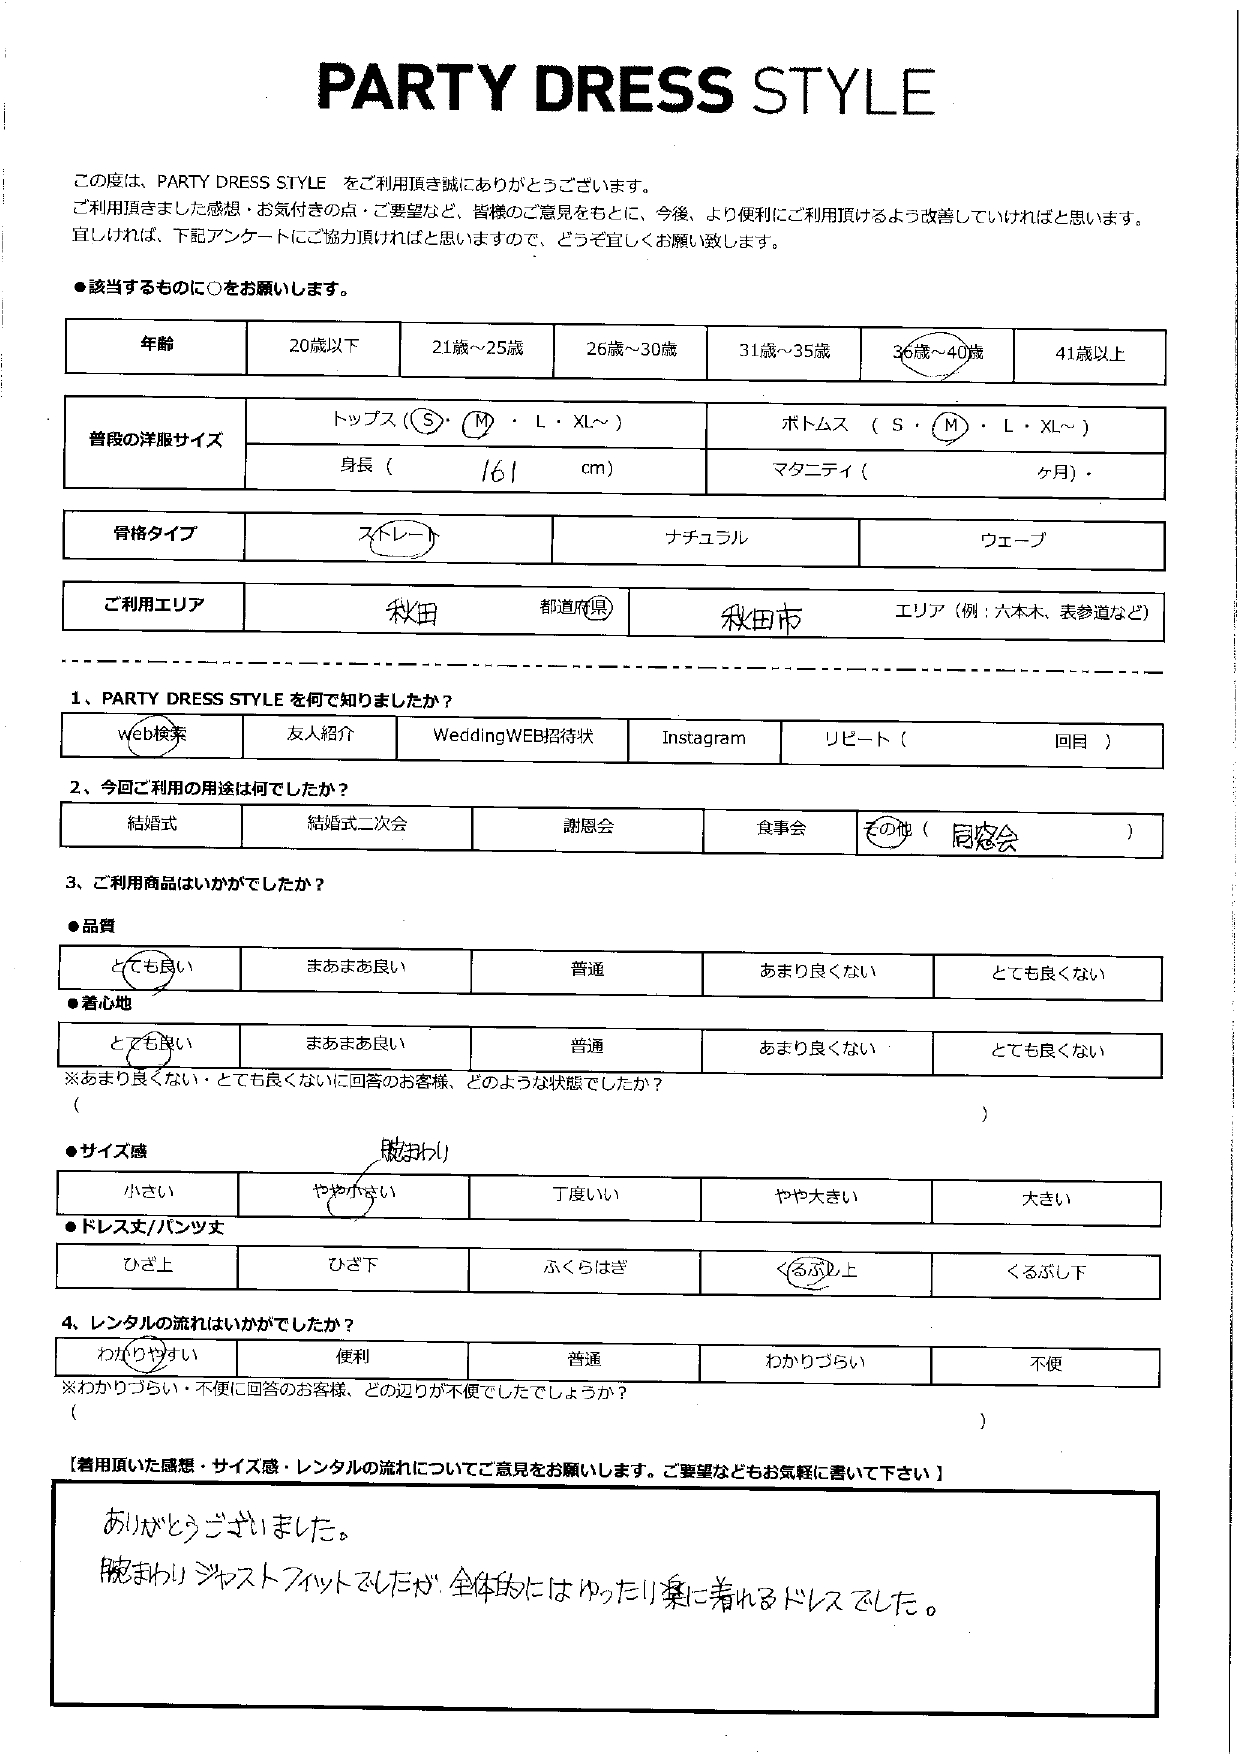 PARTY DRESS STYLE
この度は、PARTY DRESS STYLE をご利用頂き誠にありがとうございます。
ご利用頂きました感想・お気付きの点・ご要望など、皆様のご意見をもとに、今後、より便利にご利用頂けるよう改善していければと思います。
宜しければ、下記アンケートにご協力頂ければと思いますので、どうぞ宜しくお願い致します。
●該当するものに○をお願いします。
年齢 20歳以下 21歳～25歳 26歳～30歳 31歳～35歳 36歳～40歳 41歳以上
普段の洋服サイズ トップス (S・ M ・ L ・ XL～ ) ボトムス ( S ・ M ・ L ・ XL～ )
身長 ( 161 cm) マタニティ ( ケ月)・
骨格タイプ ストレート ナチュラル ウェーブ
ご利用エリア 秋田 都道府県 秋田市 エリア（例：六本木、表参道など）
1、PARTY DRESS STYLE を何で知りましたか？
web検索 友人紹介 WeddingWEB招待状 Instagram リピート ( 回目 )
2、今回ご利用の用途は何でしたか？
結婚式 結婚式二次会 謝恩会 食事会 その他 ( 同窓会 )
3、ご利用商品はいかがでしたか？
●品質
とても良い まあまあ良い 普通 あまり良くない とても良くない
●着心地
とても良い まあまあ良い 普通 あまり良くない とても良くない
※あまり良くない・とても良くないに回答のお客様、どのような状態でしたか？
( )
●サイズ感 腕まわり
小さい やや小さい 丁度いい やや大きい 大きい
●ドレス丈/パンツ丈
ひざ上 ひざ下 ふくらはぎ くるぶし上 くるぶし下
4、レンタルの流れはいかがでしたか？
わかりやすい 便利 普通 わかりづらい 不便
※わかりづらい・不便に回答のお客様、どの辺りが不便でしたでしょうか？
( )
【着用頂いた感想・サイズ感・レンタルの流れについてご意見をお願いします。ご要望などもお気軽に書いて下さい】
ありがとうございました。
腕まわりジャストフィットでしたが、全体的にはゆったり楽に着れるドレスでした。